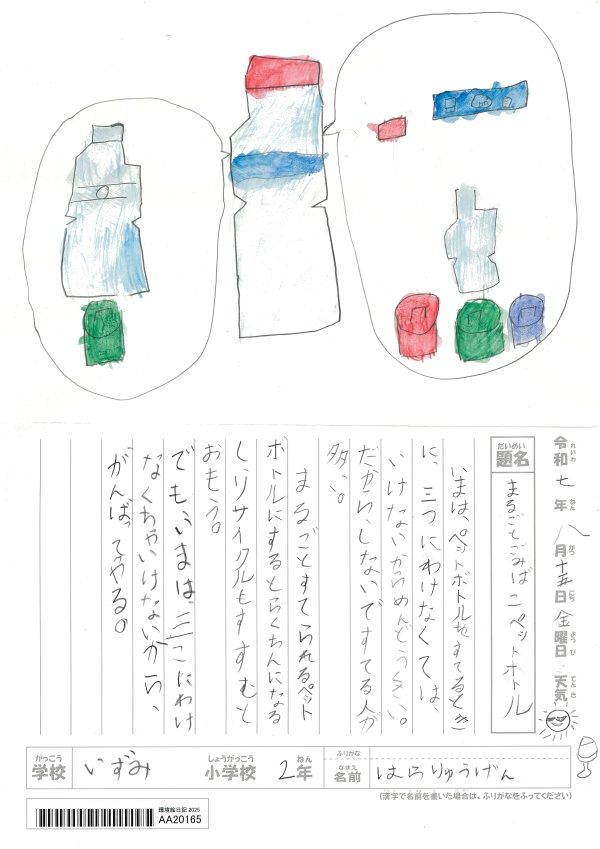 令和七年八月十五日金曜日 天気
れいわ ねん がつ にち ようび てんき
だいめい
題名 まるごとごみばこペットボトル
いまは、ペットボトルをすてるとき
に、三つにわけなくては、
いけないからめんどうくさい。
だから、しないですてる人が
多い。
まるごとすてられるペット
ボトルにするとらくちんになる
しリサイクルもすすむと
おもう。
でも、いまは、三つにわけ
なくちゃいけないから、
がんばってやる。
がっこう しょうがっこう ねん ふりがな
学校 いずみ 小学校 2年
なまえ
名前 はらりゅうげん
(漢字で名前を書いた場合は、ふりがなをふってください)
環境絵日記2025
AA20165